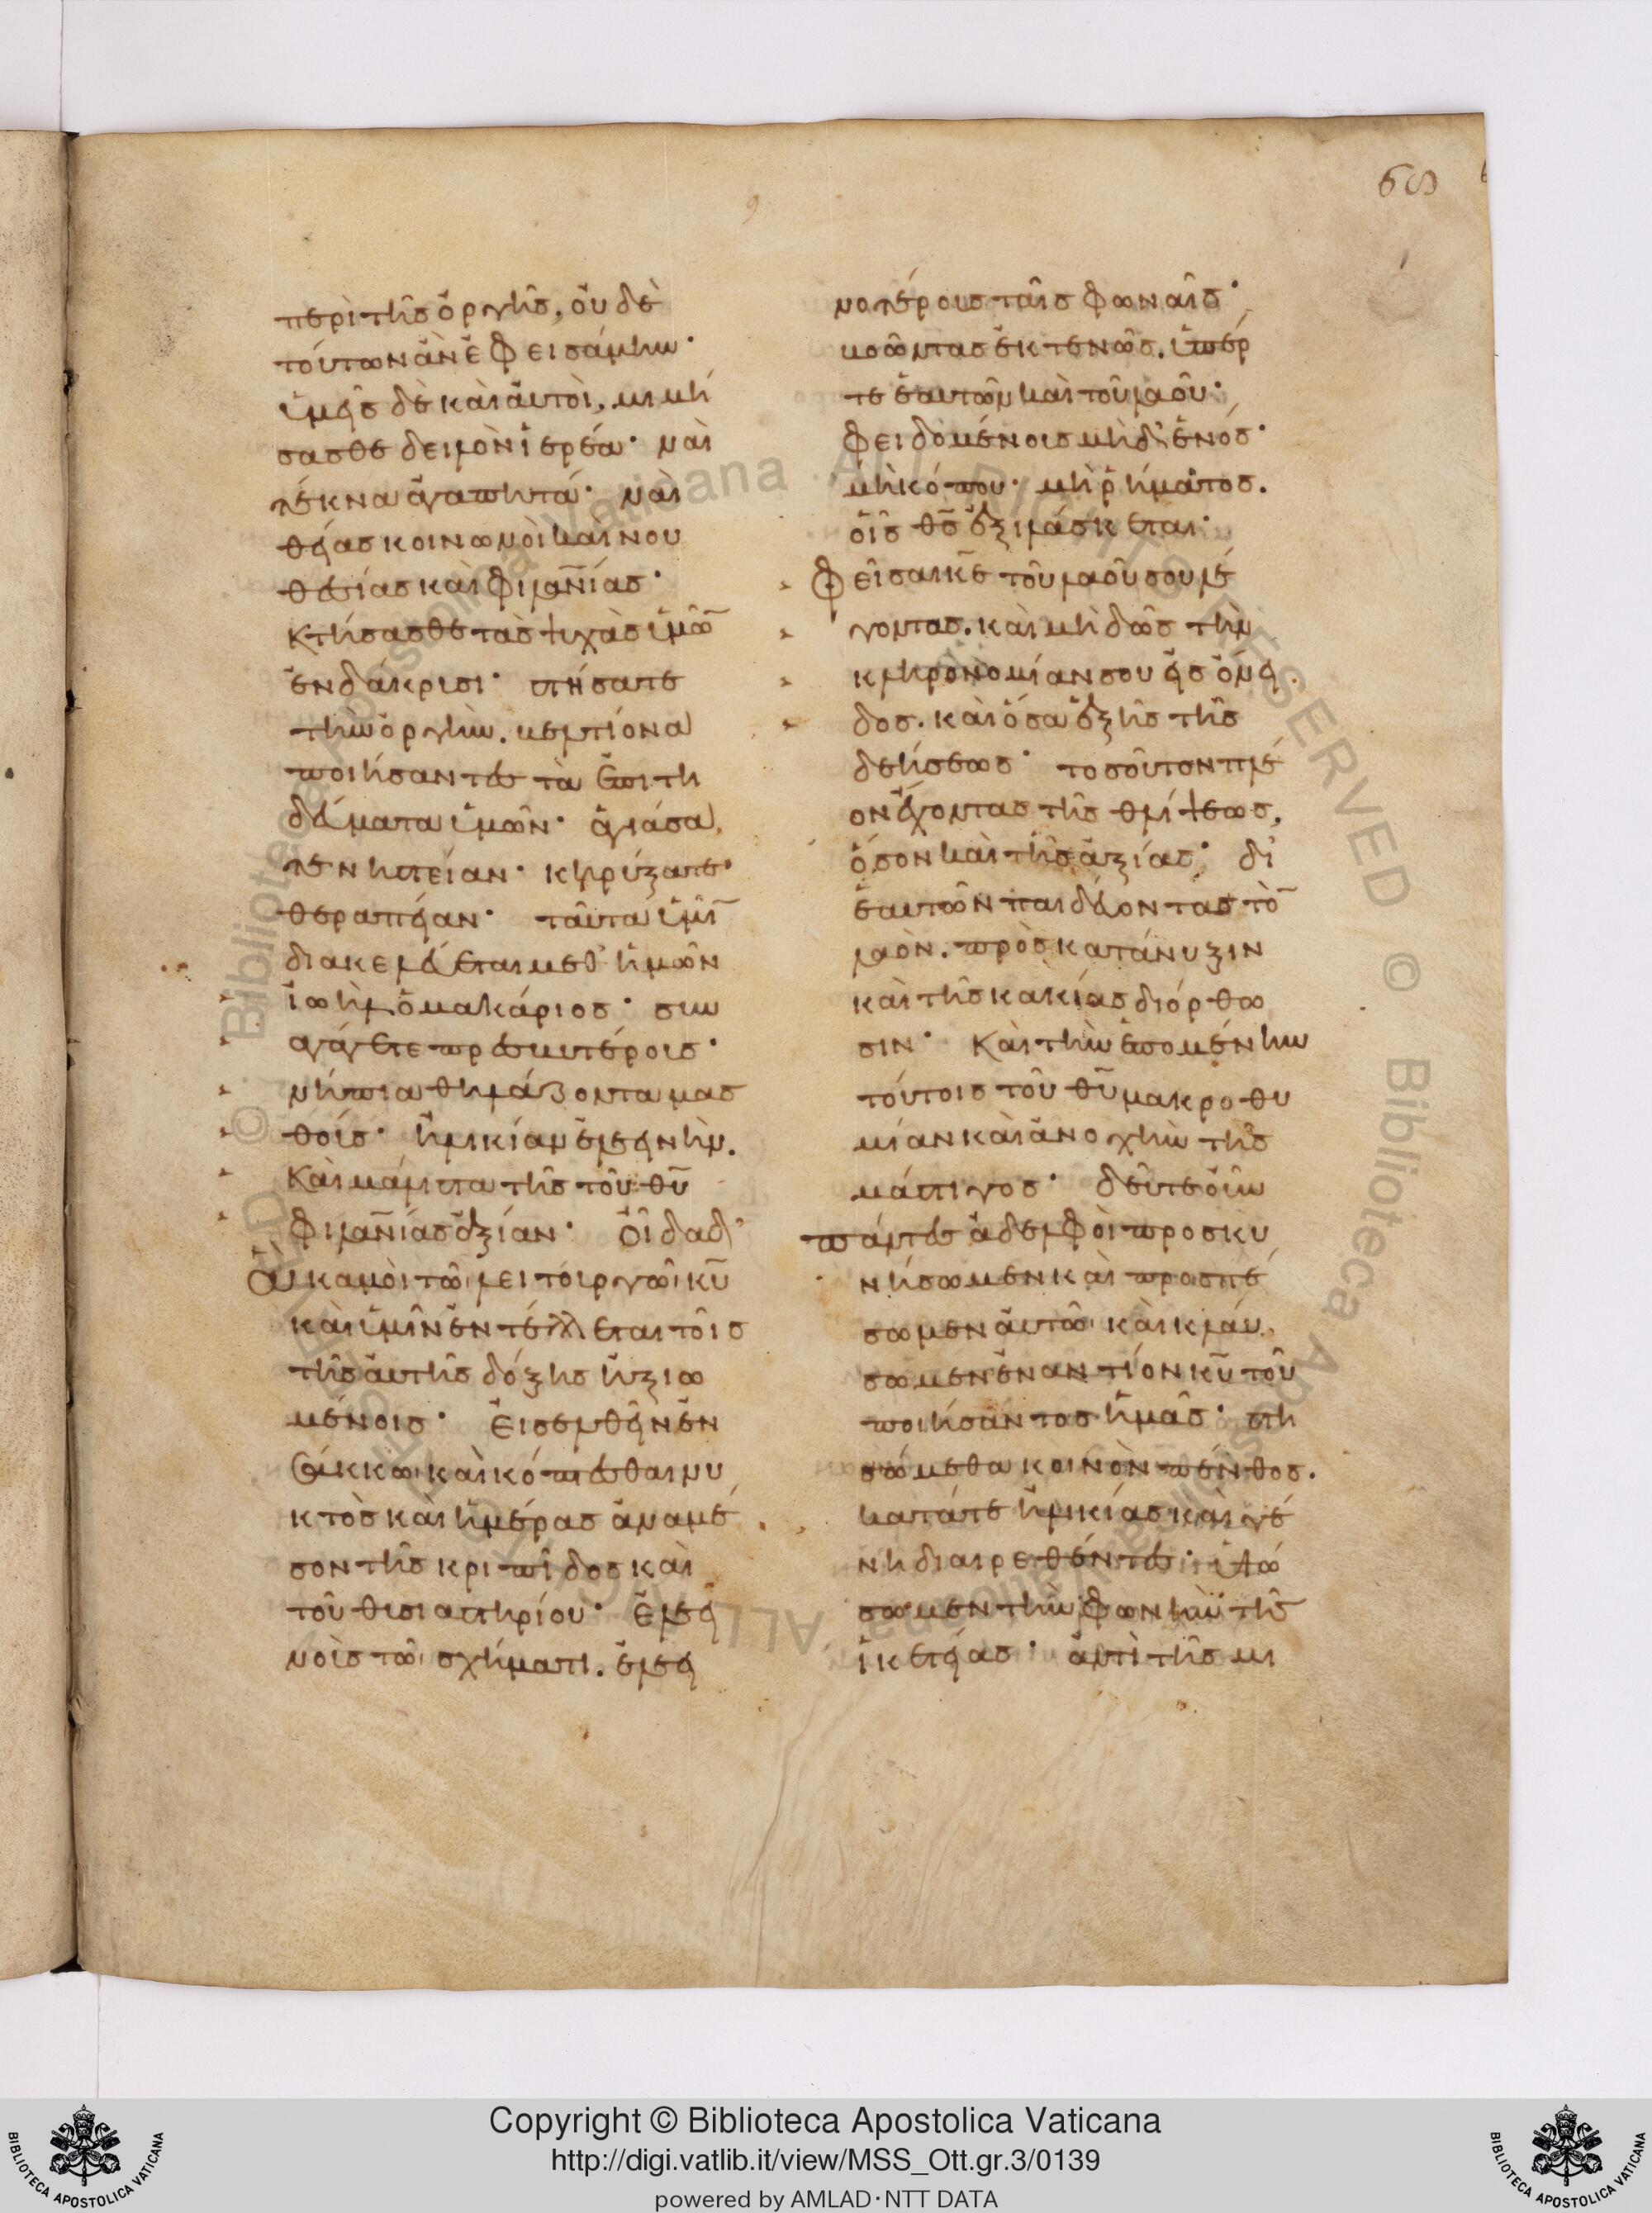 68
περὶ τῆς ὀργῆς, οὐδὲ
τούτων ἂν ἐφεισάμην·
ὑμεῖς δὲ καὶ αὐτοὶ, μιμή
σασθε δειλὸν ἱερέα· ναὶ
τέκνα ἀγαπητά· ναὶ
θείας κοινωνοὶ καὶ νου
θεσίας καὶ φιλανίας·
κτήσασθε τὰς ψυχὰς ὑμῶ
ἐν δάκρισι· στήσατε
τὴν ὀργὴν. μελτίονα
ποιήσαντες τὰ ἐπιτη
δεύματα ὑμῶν· ἁγιάσα
τε νηστείαν· κηρύξατε
θεραπείαν· ταῦτα ὑμῖ
διακελεύεται μεθ' ἡμῶν
ἰωὴλ ὁ μακάριος· συν
αγάγετε πρεσβυτέροις·
νήπια θηλάζοντα μασ
θοίς· ἡλικίαν ἐλεεινὴν.
καὶ μάλιστα τῆς τοῦ θυ
φιλανίας ἀξίαν· οἶδα δ'
ἃ κἀμοὶ τῶ λειτουργῶ κυ
καὶ ὑμῖν ἐντέλλεται τοῖς
τῆς αὐτῆς δόξης ἠξιω
μένοις· εἰσελθεῖν ἐν
σάκκω καὶ κόπτεσθαι νυ
κτὸς καὶ ἡμέρας ἀναμέ
σον τῆς κριπῖδος καὶ
τοῦ θυσιαστηρίου· ἐλεει
νοῖς τῶ σχήματι. ἐλεει
νοτέροις ταῖς φωναῖς·
βοῶντας ἐκτενῶς. ὑπέρ
τε ἑαυτῶν καὶ τοῦ λαοῦ·
φειδομένοις μὴδ' ἑνός·
μὴ κόπου· μὴ ῥήματος.
οἷς θς ἐξιλάσκεται·
φεῖσαι κε τοῦ λαοῦ σου λέ
γοντας. καὶ μὴ δῶς τὴν
κληρονομίαν σου εἰς ὄνει
δος. καὶ ὅσα ἑξῆς τῆς
δεήσεως· τοσοῦτον πλέ
ον ἔχοντας τῆς θλίψεως,
ὅσον καὶ τῆς ἀξίας· δι'
ἑαυτῶν παιδεύοντας τὸ
λαὸν. πρὸς κατάνυξιν
καὶ τῆς κακίας διόρθω
σιν· καὶ τὴν ἑπομένην
τούτοις τοῦ θυ μακροθυ
μίαν καὶ ἀνοχὴν τῆς
μάστιγος· δεῦτε οὖν
πάντες ἀδελφοὶ προσκυ
νήσωμεν καὶ προσπέ
σωμεν αὐτῶ καὶ κλαύ
σωμεν ἐναντίον κυ τοῦ
ποιήσαντος ἡμᾶς· στη
σώμεθα κοινὸν πένθος.
κατάτε ἡλικίας καὶ γέ
νη διαιρεθέντες· ὑψώ
σωμεν τὴν φωνὴν τῆς
ἱκετείας· ἀντὶ τῆς μι
Copyright © Biblioteca Apostolica Vaticana
http://digi.vatlib.it/view/MSS_Ott.gr.3/0139
powered by AMLAD·NTT DATA
BIBLIOTECA APOSTOLICA VATICANA
BIBLIOTECA APOSTOLICA VATICANA